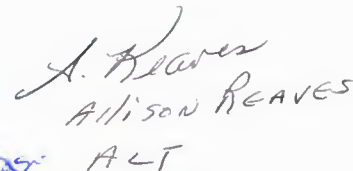 A. Reaves
Allison REAVES
ALT